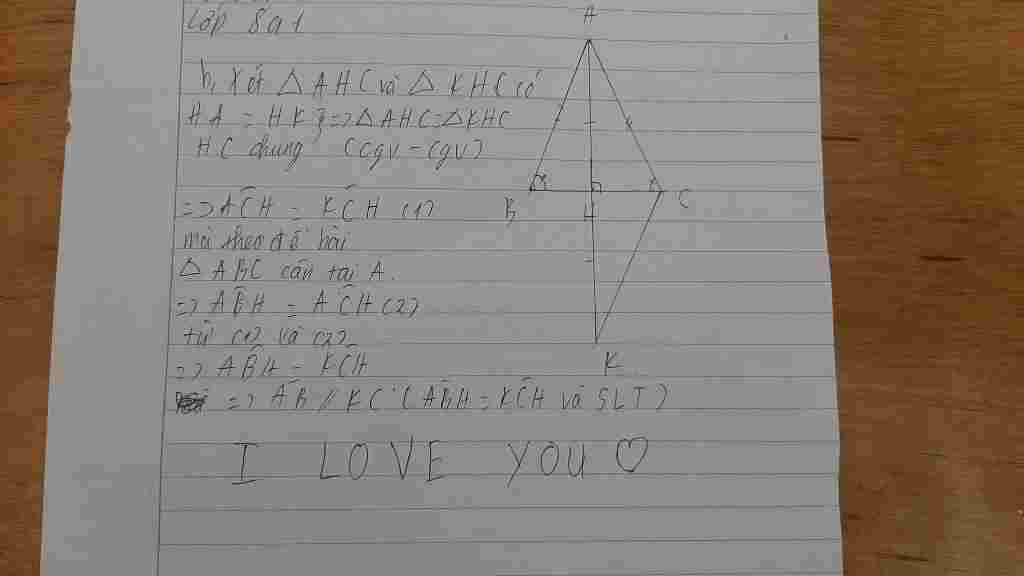 Lớp 8a1
b, Xét △ AHC và △ KHC có
HA = HK } => △ AHC = △ KHC
HC chung (cgv - cgv)
=> AĈH = KĈH (1)
mà theo đề bài
△ ABC cân tại A.
=> AB̂H = AĈH (2)
từ (1) và (2)
=> AB̂H = KĈH
=> AB // KC (AB̂H = KĈH và SLT)
I LOVE YOU ♡
A
B
H
C
K